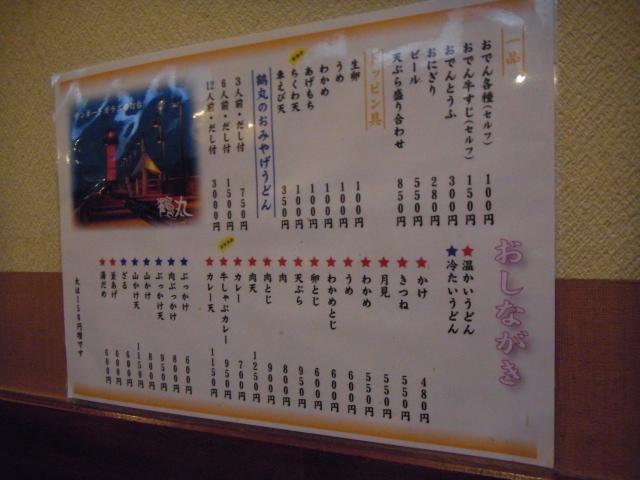 おしながき
★温かいうどん
★冷たいうどん
★かけ 480円
★きつね 550円
★月見 550円
★わかめ 550円
★うめ 600円
★わかめとじ 600円
★卵とじ 600円
★天ぷら 950円
★肉 800円
★肉とじ 900円
★肉天 1250円
★カレー 700円
★牛しゃぶカレー 950円
★カレー天 1150円
★ぶっかけ 600円
★肉ぶっかけ 800円
★ぶっかけ天 950円
★山かけ 800円
★山かけ天 1150円
★ざる 600円
★釜あげ 600円
★湯だめ 600円
大は150円増です
一品
おでん各種(セルフ) 100円
おでん牛すじ(セルフ) 150円
おでんとうふ 300円
おにぎり 280円
ビール 550円
天ぷら盛り合わせ 850円
トッピン具
生卵 100円
うめ 100円
わかめ 100円
あげもち 100円
ちくわ天 100円
車えび天 350円
鶴丸のおみやげうどん
3人前・だし付 750円
6人前・だし付 1500円
12人前・だし付 3000円
鶴丸